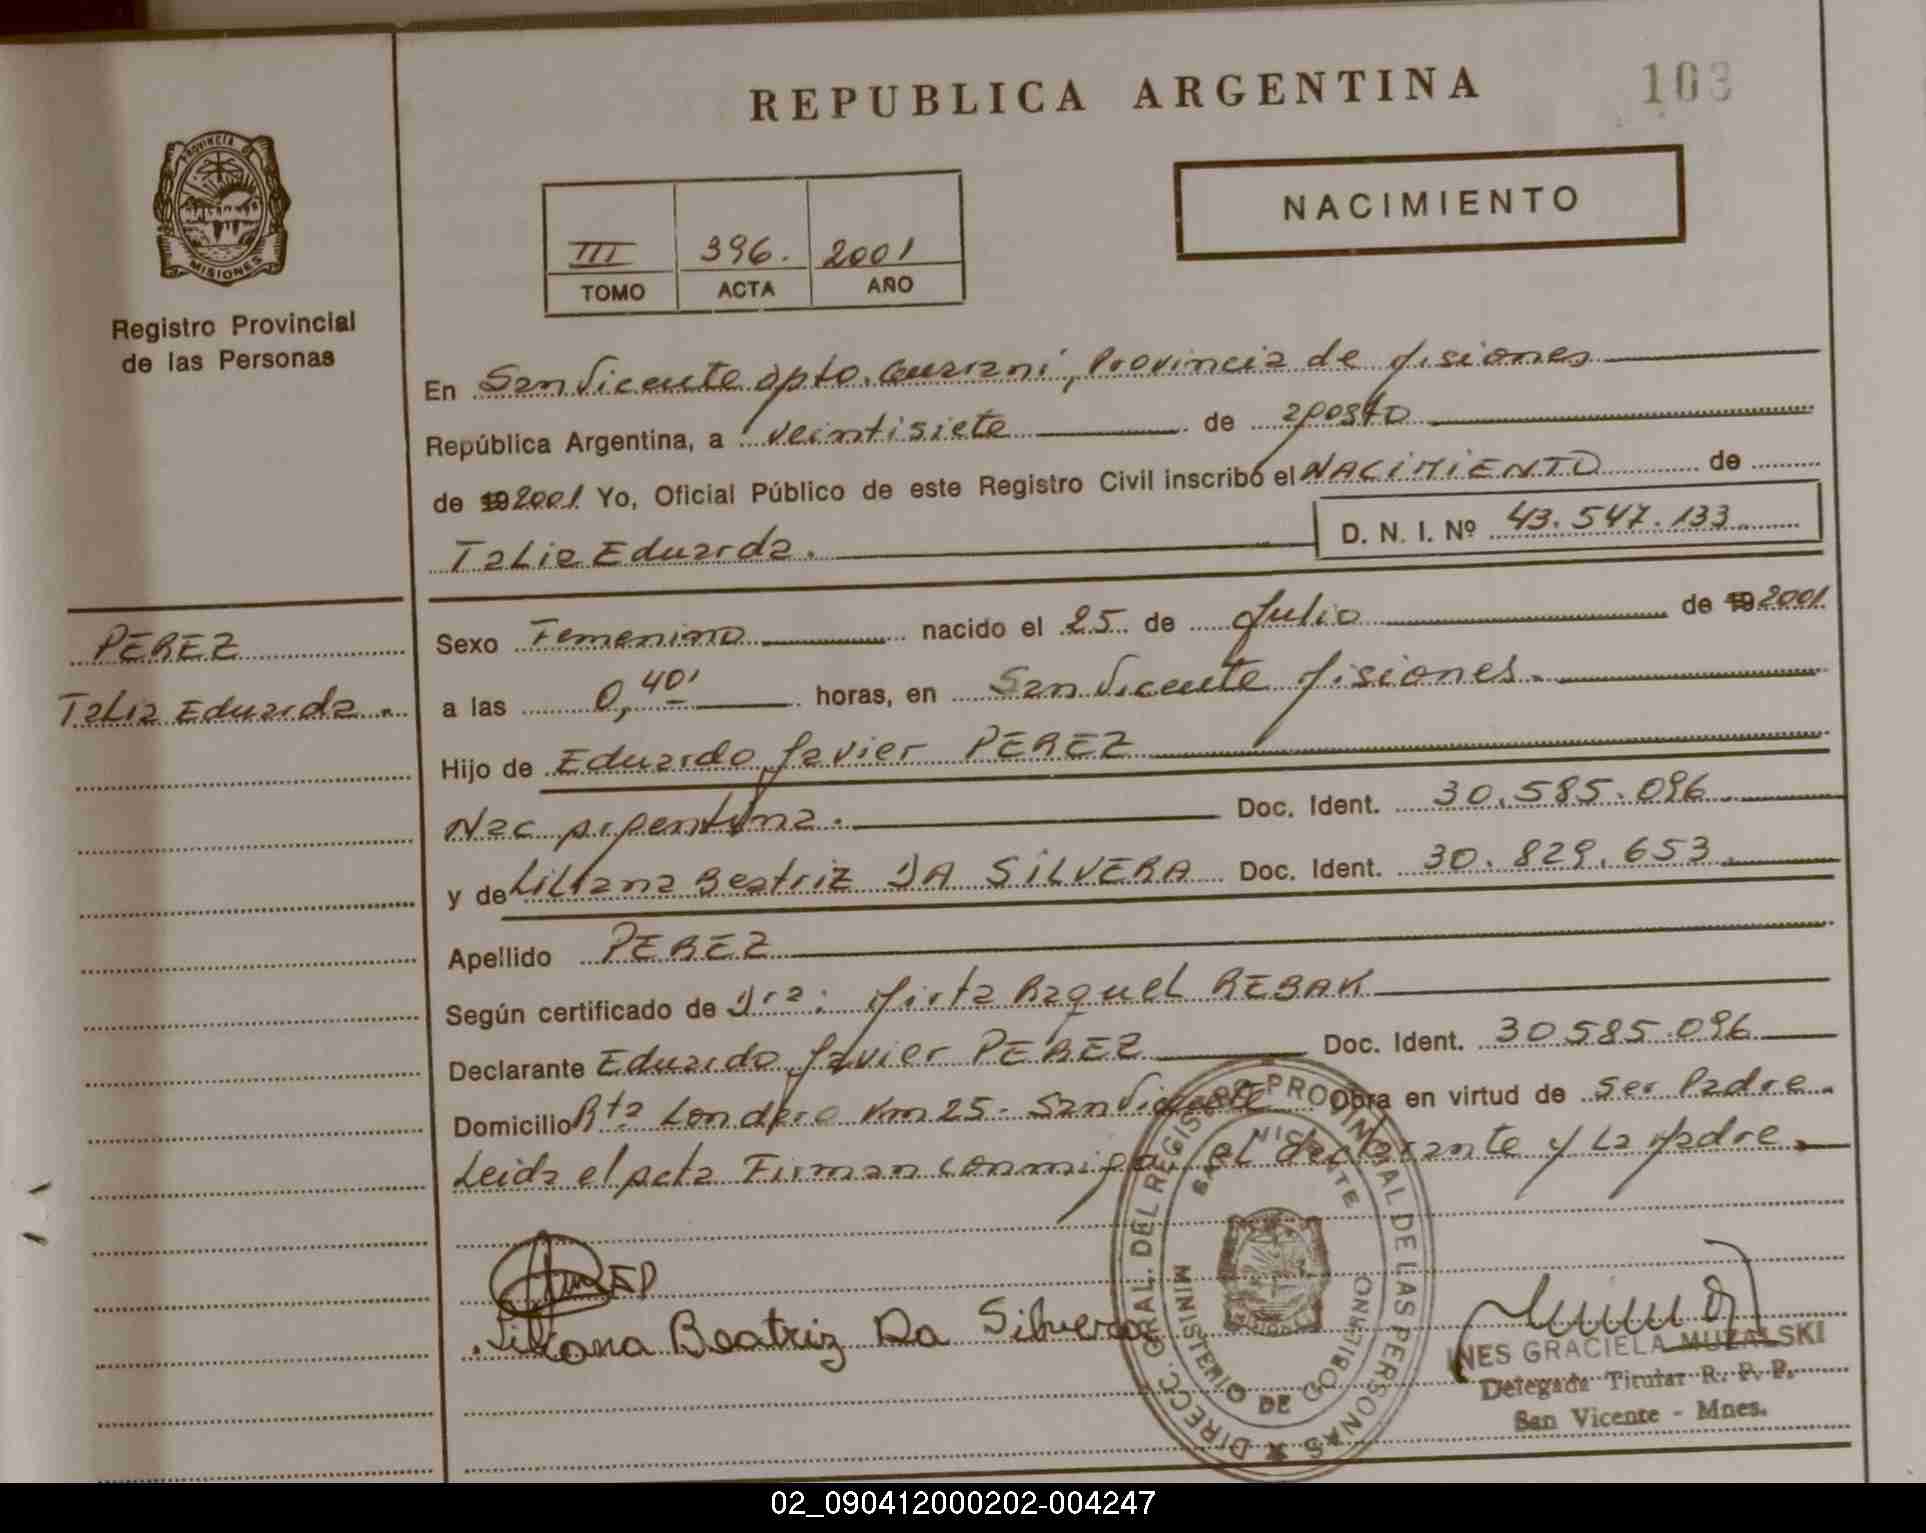 REPUBLICA ARGENTINA
103
PROVINCIA DE
MISIONES
Registro Provincial
de las Personas
III 396. 2001
TOMO ACTA AÑO
NACIMIENTO
En San Vicente Dpto. Guaraní, Provincia de Misiones
República Argentina, a veintisiete de agosto
de 19 2001 Yo, Oficial Público de este Registro Civil inscribo el NACIMIENTO de
Talia Eduarda.
D. N. I. Nº 43.547.133
PEREZ
Talia Eduarda.
Sexo Femenino nacido el 25 de Julio de 19 2001
a las 0,40' horas, en San Vicente Misiones.
Hijo de Eduardo Javier PEREZ
Nac Argentina. Doc. Ident. 30.585.096
y de Liliana Beatriz DA SILVERA Doc. Ident. 30.829.653
Apellido PEREZ
Según certificado de Dra: Mirta Raquel REBAK
Declarante Eduardo Javier PEREZ Doc. Ident. 30585.096
Domicilio Rta Londero Km 25. San Vicente Obra en virtud de ser Padre.
Leida el acta Firman conmigo el declarante y La Madre.
EP
Liliana Beatriz Da Silvera
DIRECC. GRAL. DEL REGISTRO PROVINCIAL DE LAS PERSONAS
SAN VICENTE
MINISTERIO DE GOBIERNO
INES GRACIELA MUZALSKI
Delegada Titular R. P. P.
San Vicente - Mnes.
02_090412000202-004247